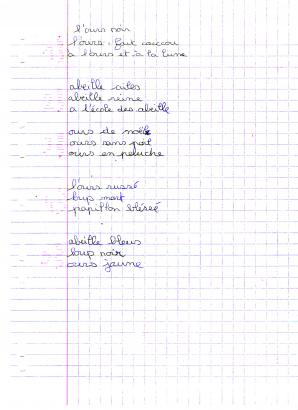 l'ours noir
l'ours fait coucou
a l'ours et à la lune
abeille ailes
abeille reine
a l'école des abeille
ours de noël
ours sans poil
ours en peluche
l'ours russé
loup mort
papillon bléséé
abeille bleus
loup noir
ours jaune